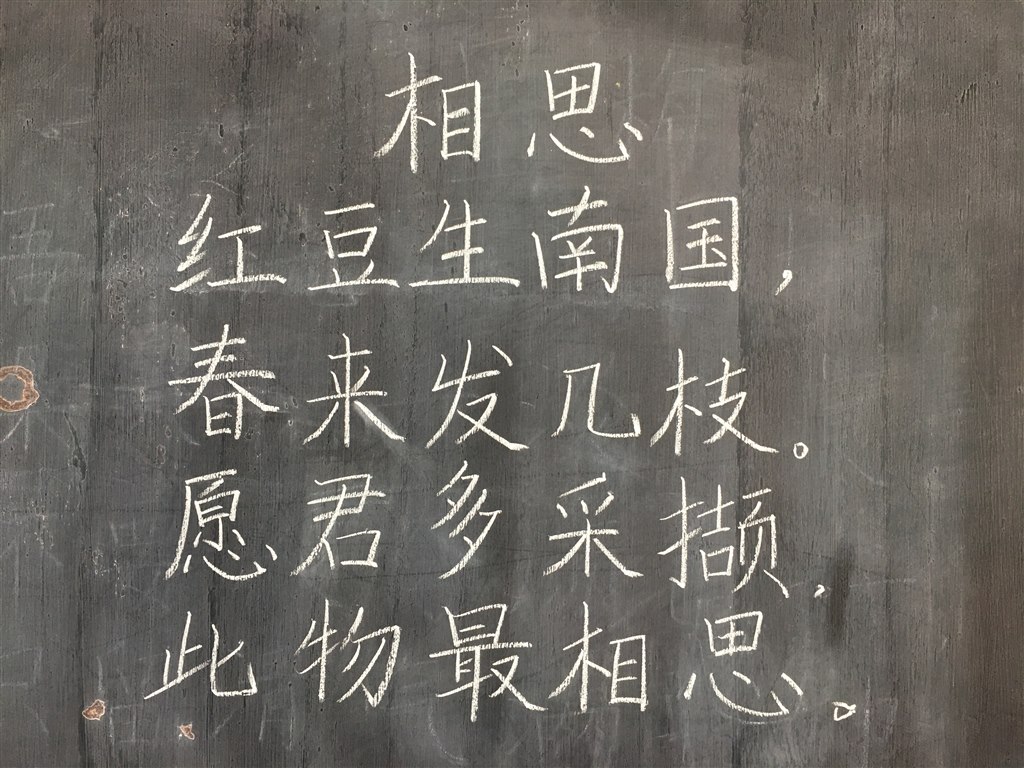 相思
红豆生南国，
春来发几枝。
愿君多采撷，
此物最相思。